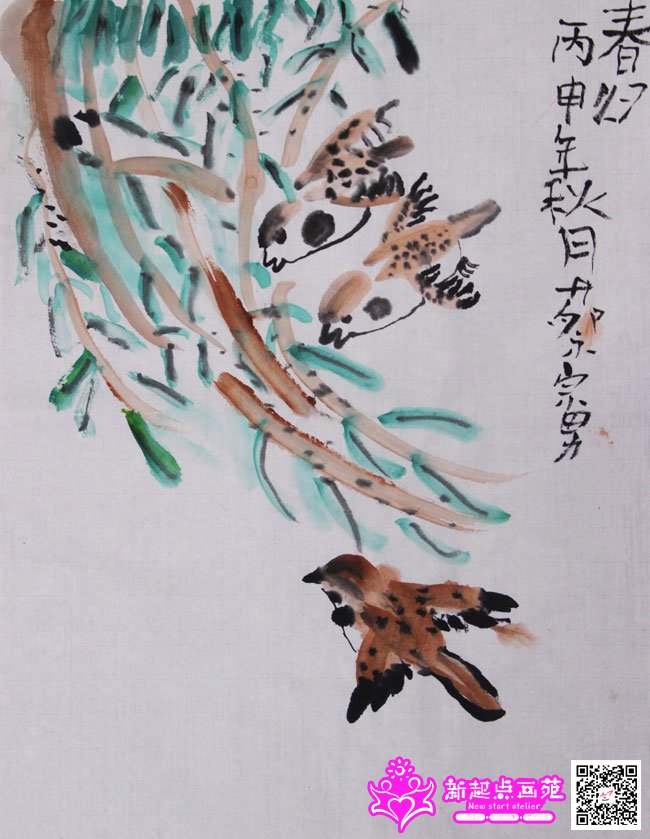 春归
丙申年秋月蔡宗勇
新起点画苑
New start atelier